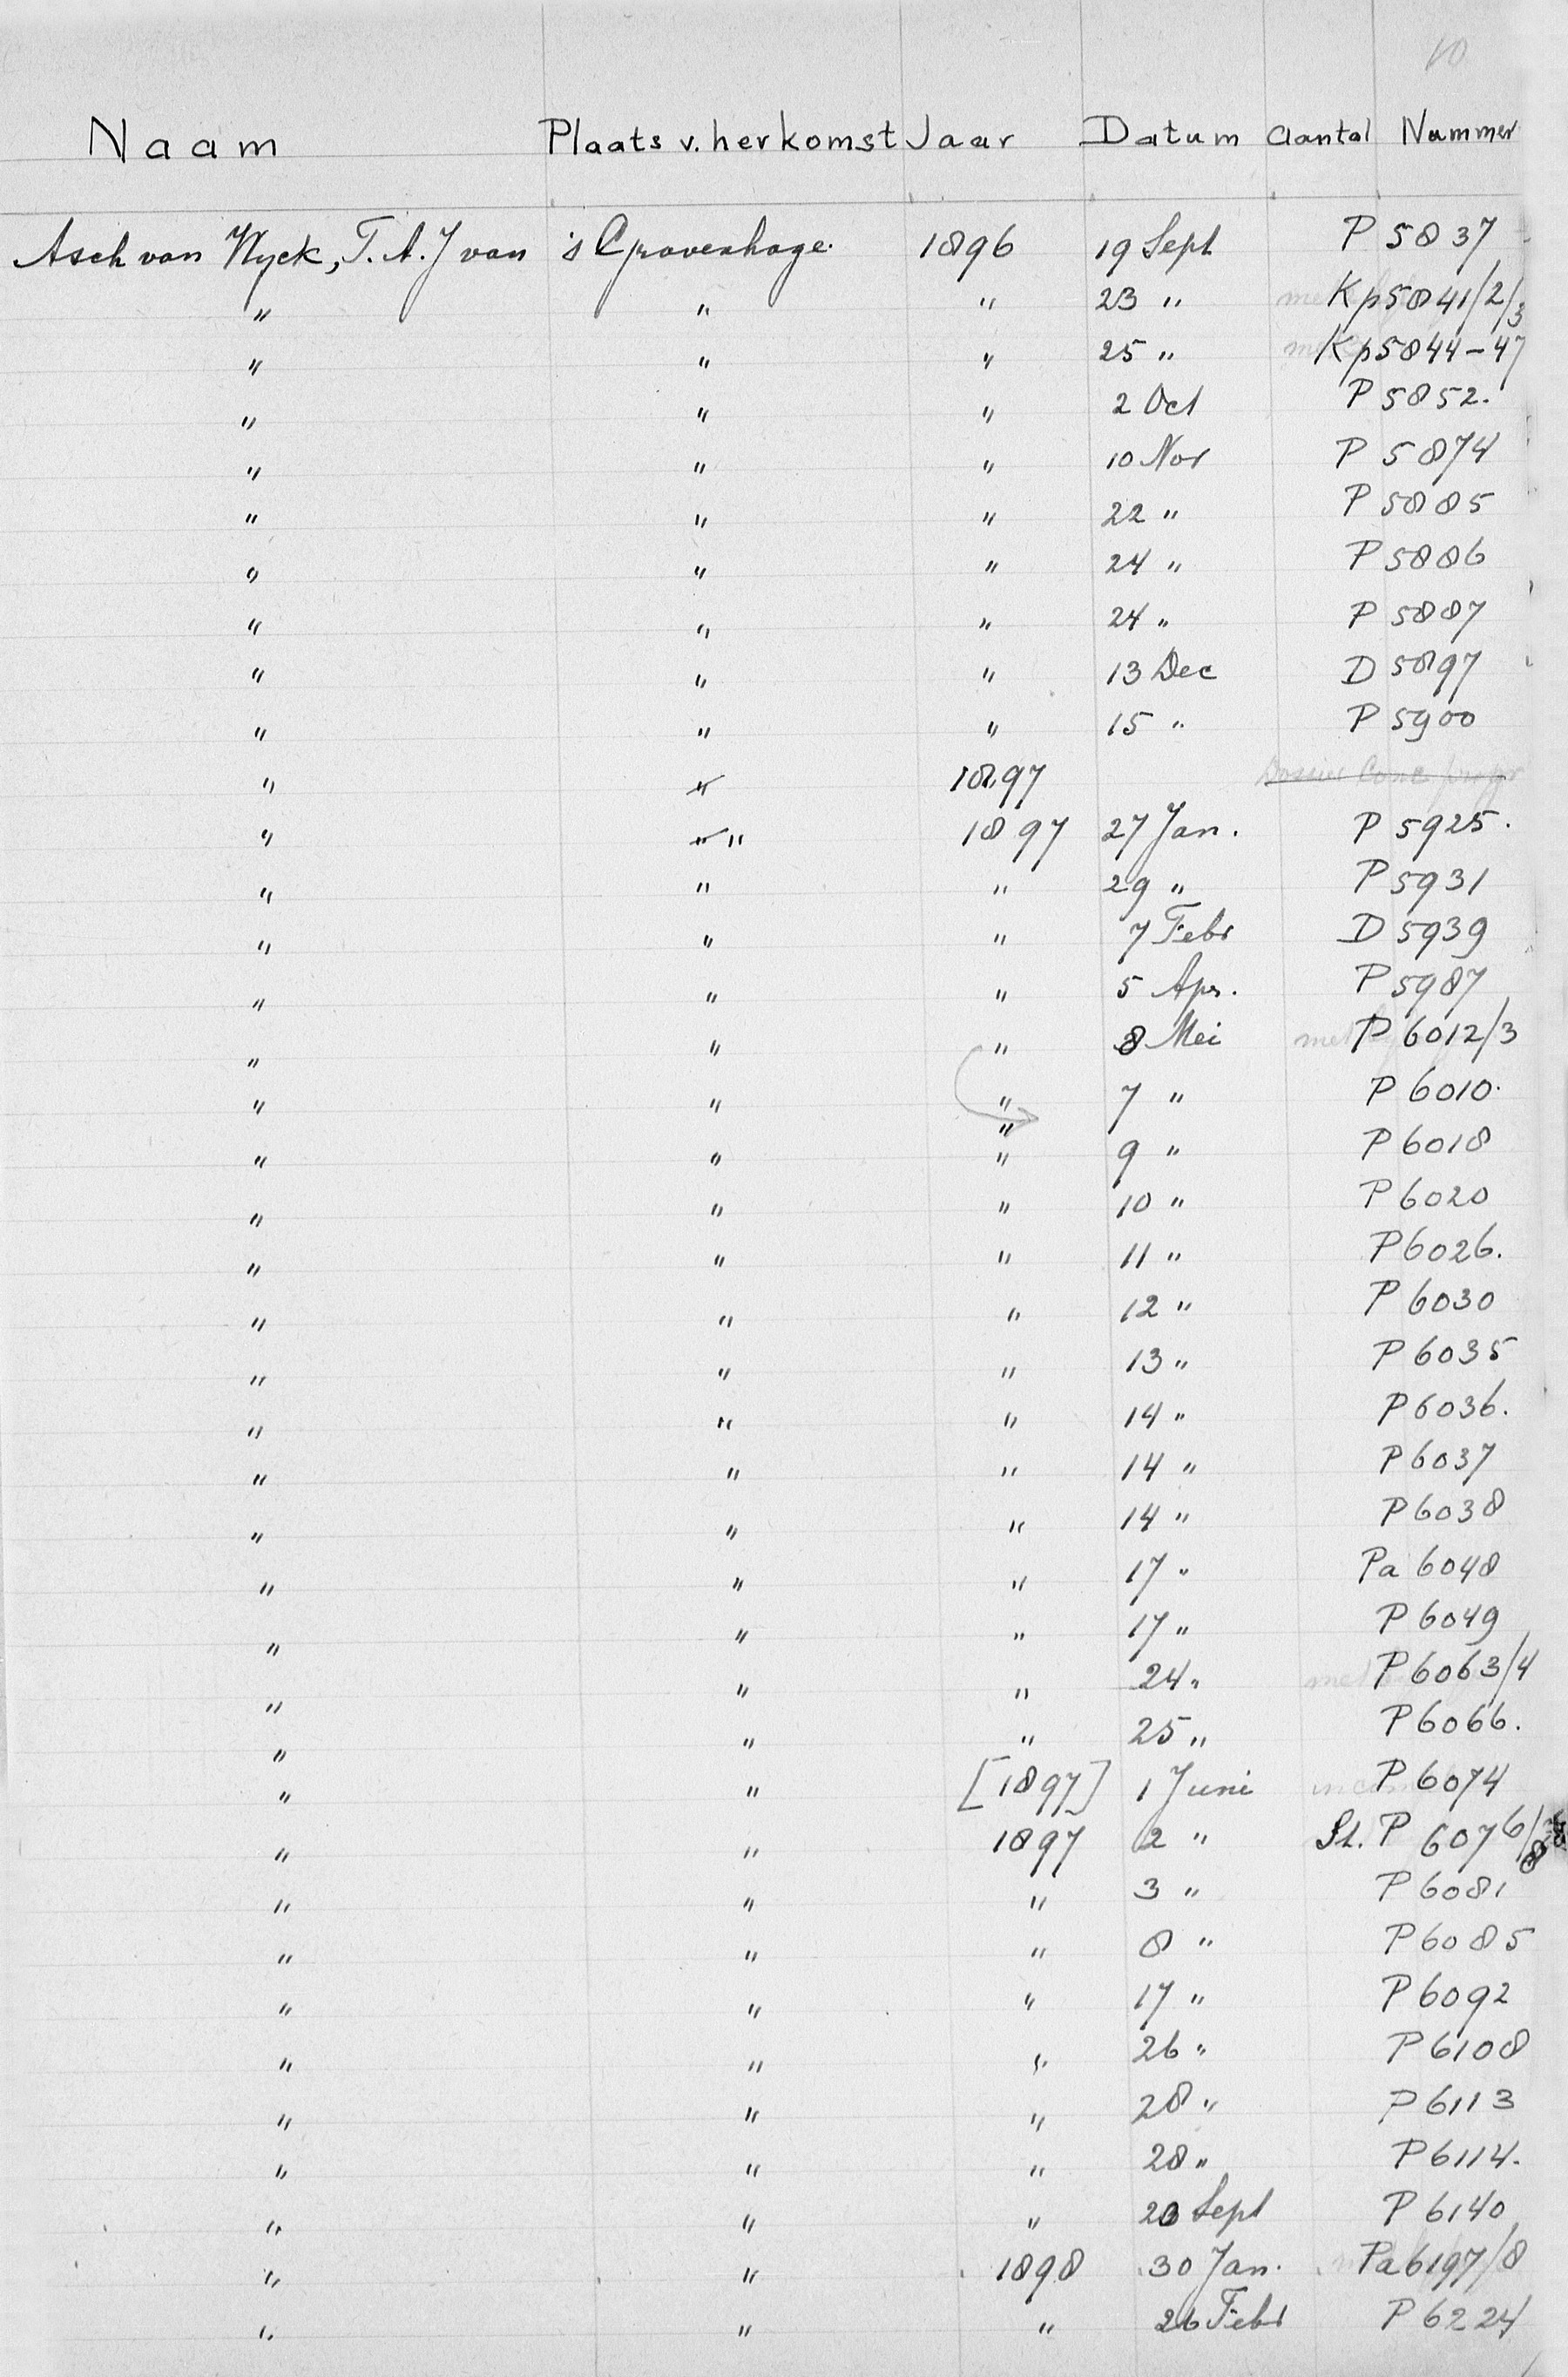 10
Naam Plaats v. herkomst Jaar Datum Aantal Nummer
Asch van Wyck, T. A. J van 's Gravenhage. 1896 19 Sept P 5837
" " " 23 " Kp 5841/2/3
" " " 25 " Kp 5844-47
" " " 2 Oct P 5852.
" " " 10 Nov P 5874
" " " 22 " P 5885
" " " 24 " P 5886
" " " 24 " P 5887
" " " 13 Dec D 5897
" " " 15 " P 5900
" " 1897 Dossier Conc progr
" " " 1897 27 Jan. P 5925.
" " " 29 " P 5931
" " " 7 Febr D 5939
" " " 5 Apr. P 5987
" " " 8 Mei met P 6012/3
" " " 7 " P 6010.
"
" " " 9 " P 6018
" " " 10 " P 6020
" " " 11 " P 6026.
" " " 12 " P 6030
" " " 13 " P 6035
" " " 14 " P 6036.
" " " 14 " P 6037
" " " 14 " P 6038
" " " 17 " Pa 6048
" " " 17 " P 6049
" " " 24 " met P 6063/4
" " " 25 " P 6066.
" " [1897] 1 Juni P 6074
" " 1897 2 " St. P 6076/8
" " " 3 " P 6081
" " " 8 " P 6085
" " " 17 " P 6092
" " " 26 " P 6108
" " " 28 " P 6113
" " " 28 " P 6114.
" " " 20 Sept P 6140
" " 1898 30 Jan. Pa 6197/8
" " " 26 Febr P 6224